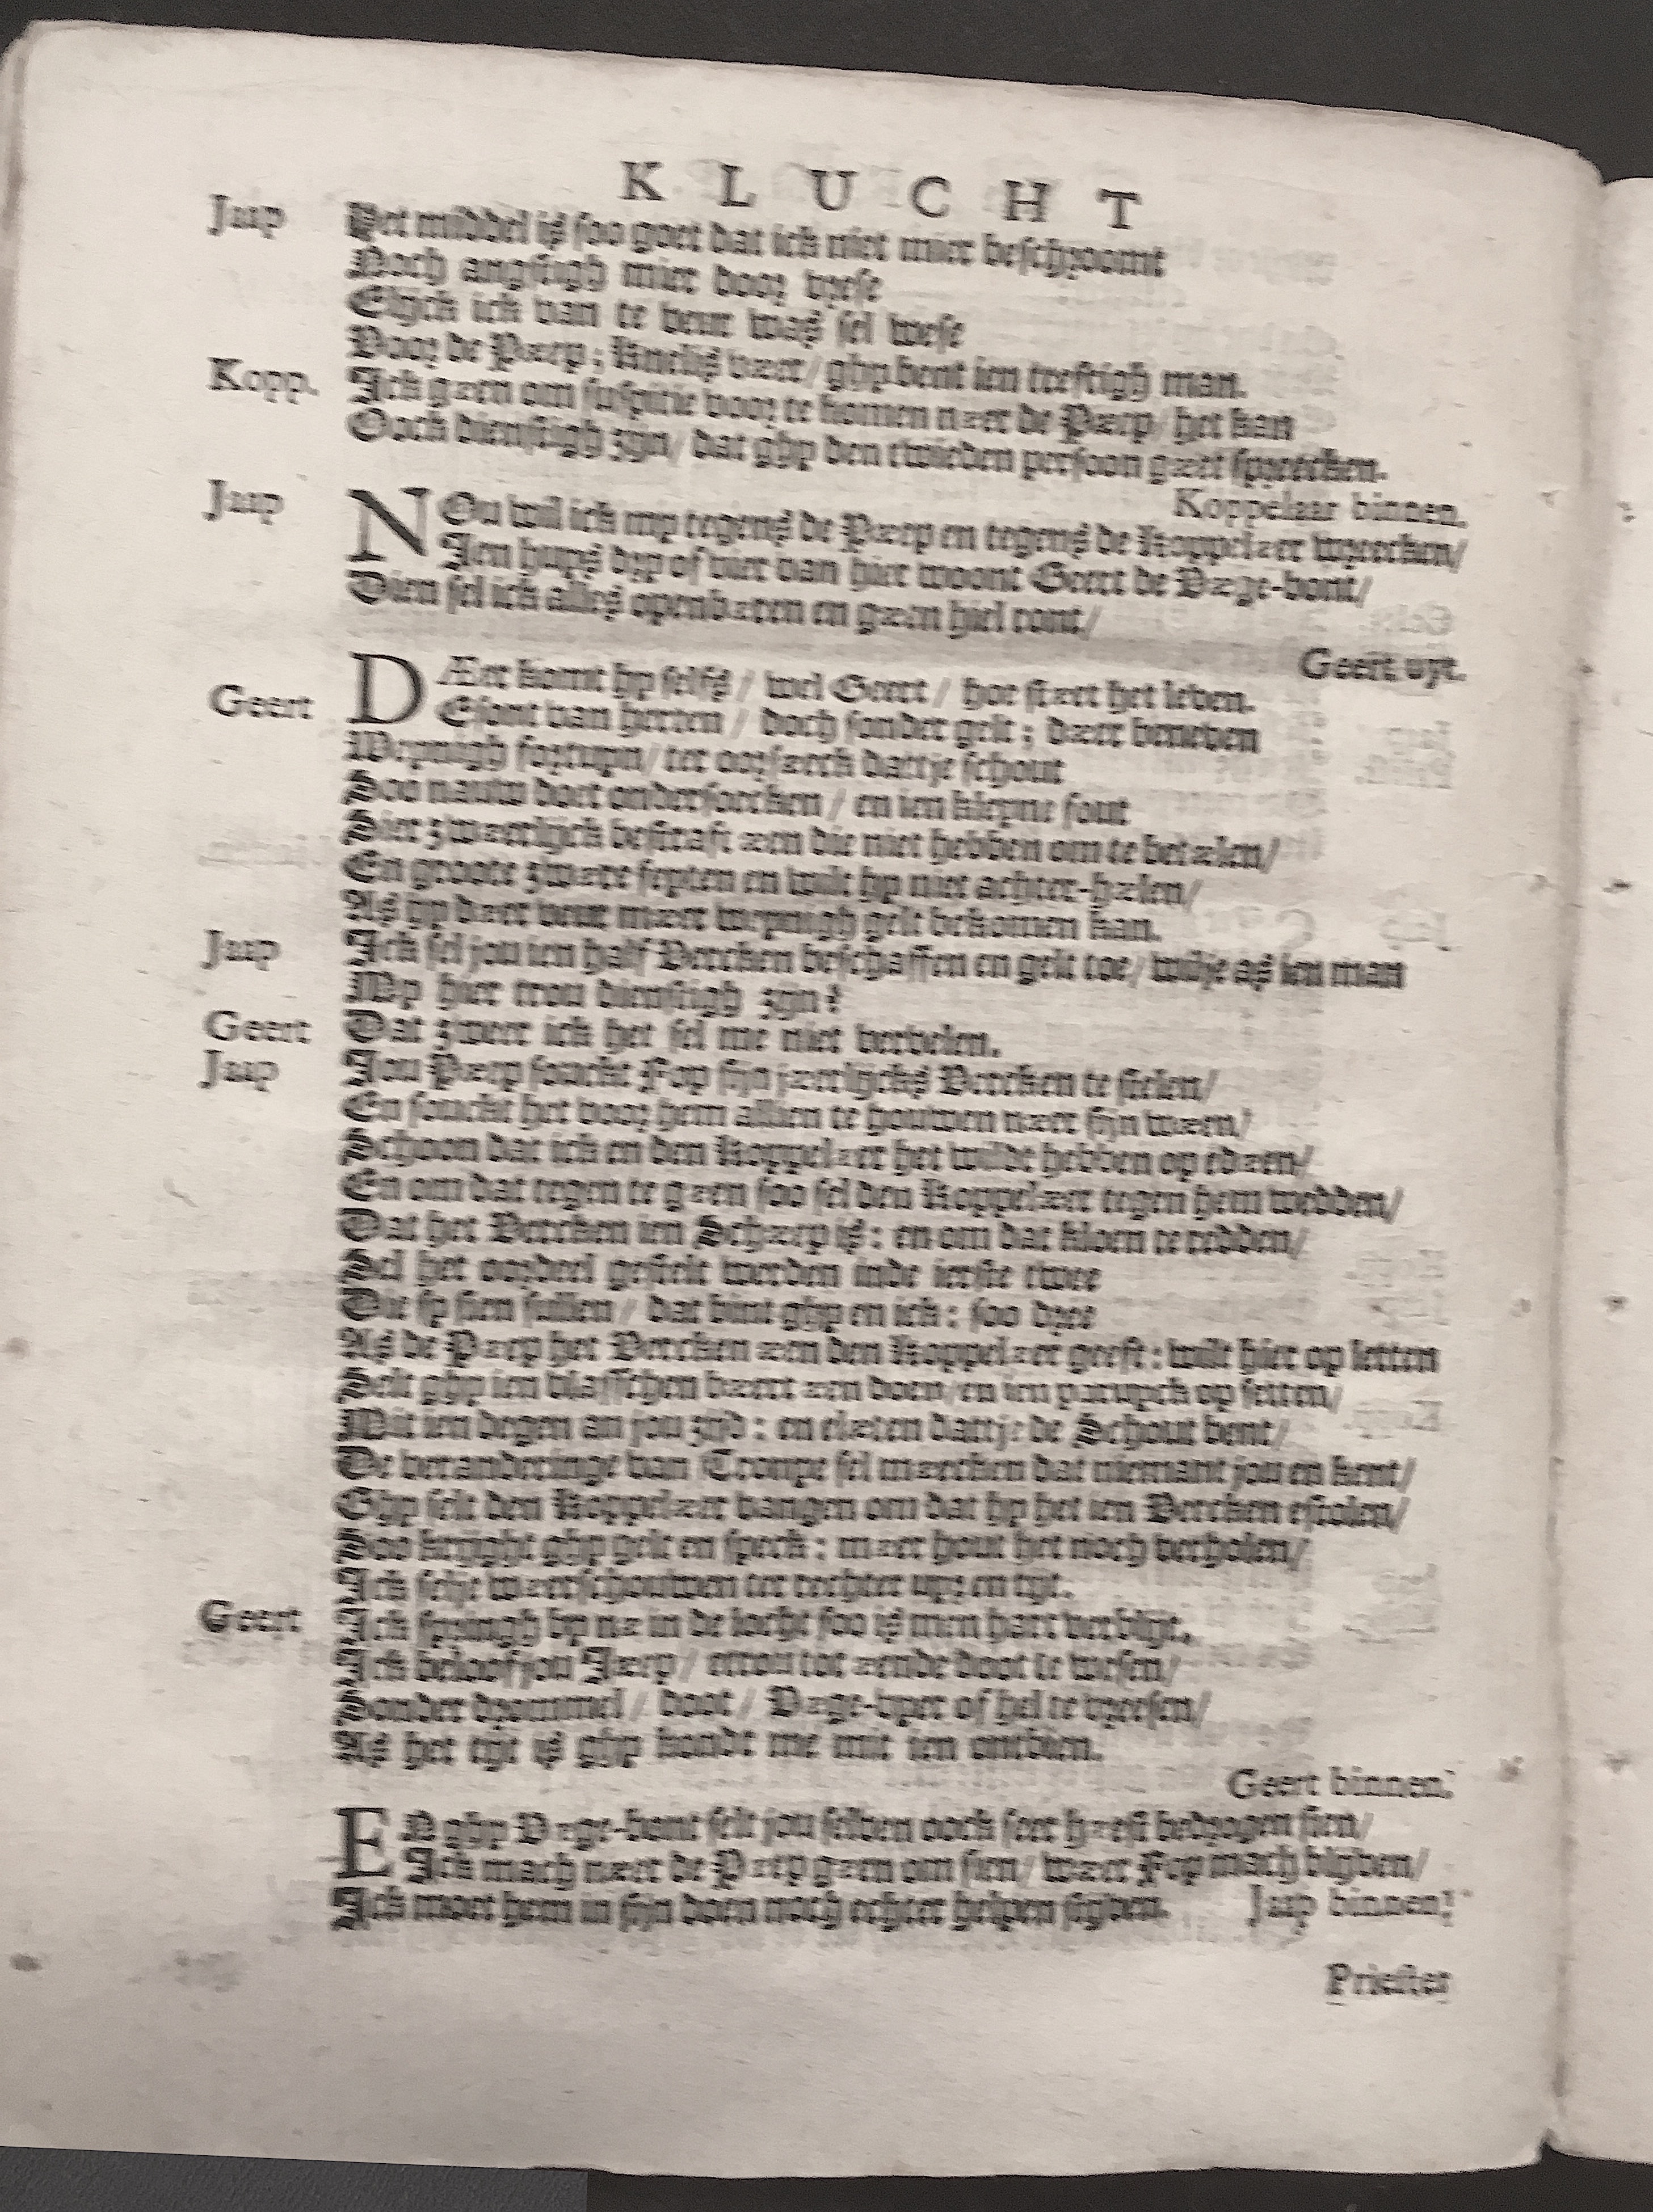 KLUCHT
Jaap Het middel is soo goet dat ick niet mier beschroomt
Noch angstigh mier door vrese
Elyck ick van te veur was sel wese
Voor de Pæep; Knelis væer/ ghy bent ien treftigh man.
Kopp. Ick gæen om suspitie voor te komen næer de Pæep/ het kan
Oock dienstigh zyn/ dat ghy den twieden persoon gæet spreecken.
Koppelaar binnen.
Jaap NOu wil ick my tegens de Pæep en tegens de Koppelæer wreecken/
Ien huys dry of vier van hier woont Geert de Væge-vont/
Dien sel ick alles openbæren en gæen hiel ront/
Geert uyt.
DÆer komt hy selfs/ wel Geert/ hoe stæet het leven.
Geert Esont van herten/ doch sonder gelt; dæer beneven
Weynigh fortuyn/ ter oorsæeck dattje schout
Soo nauw doet ondersoecken/ en ien kleyne fout
Sier zwæerlijck bestraft æen die niet hebben om te betælen/
En groote zwære feyten en wilt hy niet achter-hælen/
As hy dæer veur mæer weynigh gelt bekomen kan.
Jaap Ick sel jou ien half Vercken beschaffen en gelt toe/ wilje as ien man
My hier trou dienstigh zyn?
Geert Dat zweer ick het sel me niet vervelen.
Jaap Jou Pæep soeckt Fop sijn jæerlijcks Vercken te stelen/
En soeckt het voor hem allien te houwen næer sijn wæen/
Schoon dat ick en den Koppelæer het wilde hebben op edæen/
En om dat tegen te gæen soo sel den Koppelæer tegen hem wedden/
Dat het Vercken ien Schæep is: en om dat kloen te redden/
Sel het oordeel gestelt werden inde ierste twee
Die sy sien sullen/ dat bint ghy en ick: soo dree
As de Pæep het Vercken æen den Koppelæer geeft: wilt hier op letten
Selt ghy ien blasschen bæert æen doen/ en ien paruyck op setten/
Mit ien degen an jou zijd: en elæten dattje de Schout bent/
De veranderinge van Trouye sel mæecken dat niemant jou en kent/
Ghy selt den Koppelæer vangen om dat hy het ien Vercken estolen/
Soo krijght ghy gelt en speck: mæer hout het noch verholen/
Ick selje wæerschouwen ter rechter uyr en tijt.
Geert Ick springh by næ in de locht soo is myn hart verblyt.
Ick beloof jou Jæep/ etrou tot æende doot te wesen/
Sonder drommel/ doot/ Væge-vyer of hel te vreesen/
As het tyt is ghy kondt me mit ien ontbien.
Geert binnen.
EN ghy Væge-vont selt jou selven oock seer hæest bedrogen sien/
Ick mach næer de Pæep gæen om sien/ wæer Fop mach blyven/
Ick moet hem in sijn doen noch echter helpen styven. Jaap binnen.
Priester